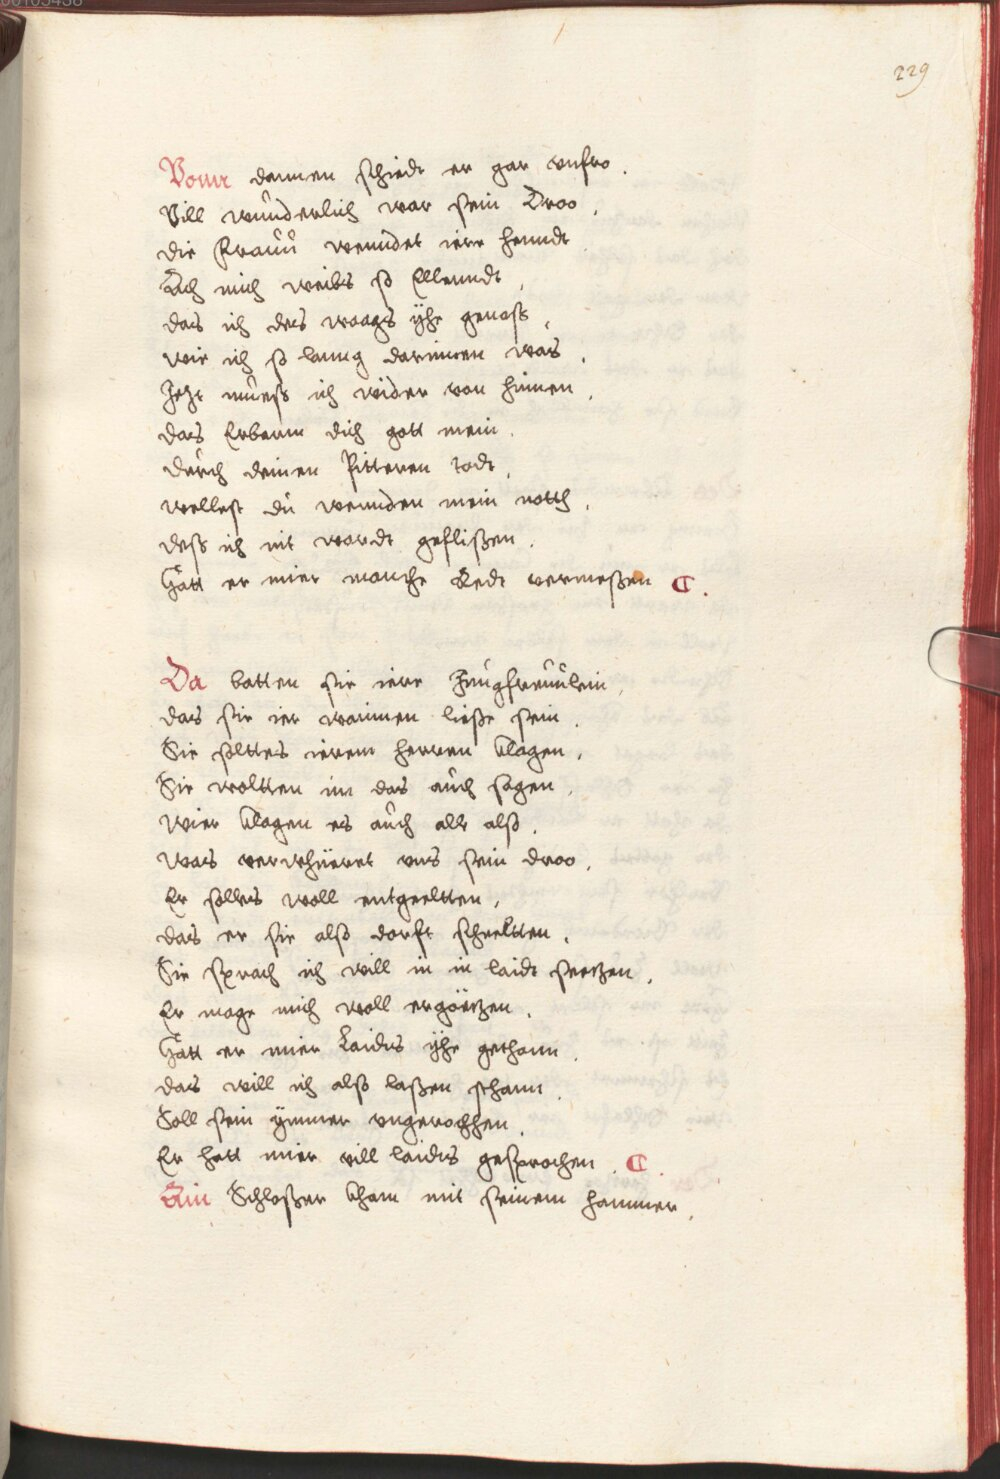 00105458
229
Vonn dannen schiedt er gar vnfro.
Vill wunderlich war sein Droo,
die Frauu wenndet ierr henndt
Ach mich weibs so Ellenndt,
das ich des waags ÿhe genoss,
wie ich so lanng darinnen was,
Jezt muess ich wider von hinnen,
das Erbarm dich gott mein.
durch deinen Pitteren todt,
wellest du wennden mein notth,
dess ich nit wardt geflißen,
Hatt er mier manche Redt vermeßen C.
Da batten sie ierr Jungfreuulein,
das sie ier wainnen ließe sein,
Sie solttes ierem herren klagen,
Sie woltten im das auch sagen,
Wier klagen es auch all also,
was verrhüeret vns sein droo,
Er solles woll entgeeltten,
das er sie also dorft scheltten,
Sie sprach ich will in in laidt seezen,
Er mage mich woll ergöezen,
Hatt er mier Laidts ÿhe gethonn,
das will ich also laßen schann,
Soll sein ÿmmer vngerochhen,
Er hatt mier vill laidts gesprochen. C.
Ain Schloßer kham mit seinem hammer,